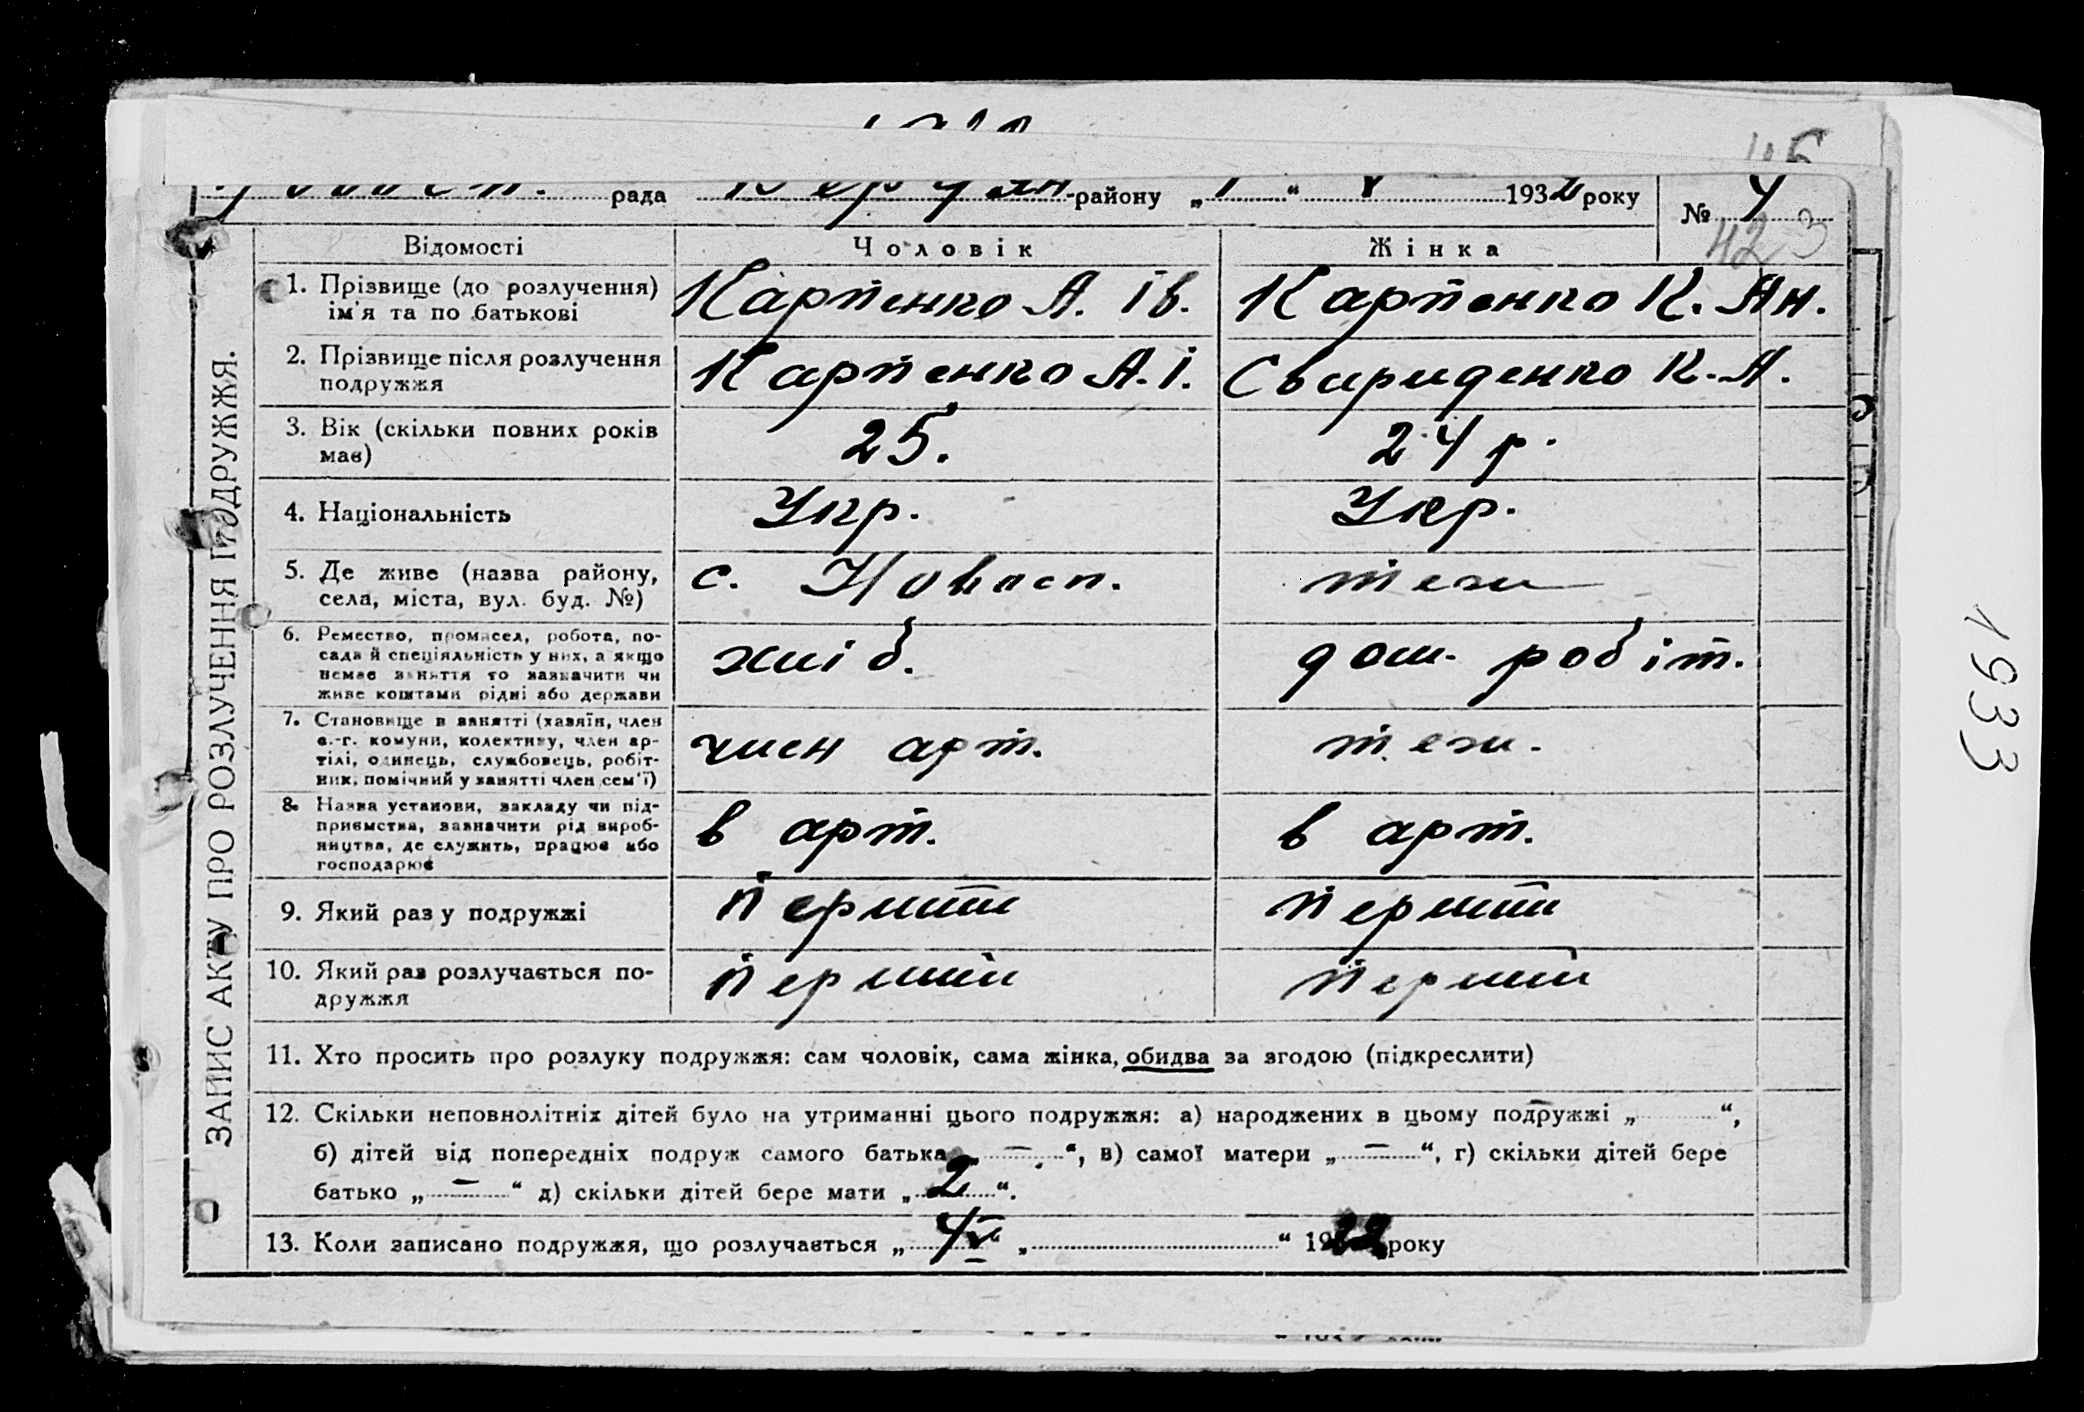 рада району „ “ 1932 року № 4
423
ЗАПИС АКТУ ПРО РОЗЛУЧЕННЯ ПОДРУЖЖЯ.
Відомості Чоловік Жінка
1. Прізвище (до розлучення) ім'я та по батькові Карпенко А. Ів. Карпенко К. Ан.
2. Прізвище після розлучення подружжя Карпенко А. І. Свириденко К. А.
3. Вік (скільки повних років має) 25. 24 р.
4. Національність Укр. Укр.
5. Де живе (назва району, села, міста, вул. буд. №) с. Новосп. теж
6. Ремество, промисел, робота, посада й спеціяльність у них, а якщо немає заняття то зазначити чи живе коштами рідні або держави хліб. дом. робіт.
7. Становище в занятті (хазяїн, член с.-г. комуни, колективу, член артілі, одинець, службовець, робітник, помічний у занятті член сем'ї) член арт. теж.
8. Назва установи, закладу чи підприємства, зазначити рід виробництва, де служить, працює або господарює в арт. в арт.
9. Який раз у подружжі перший перший
10. Який раз розлучається подружжя перший перший
11. Хто просить про розлуку подружжя: сам чоловік, сама жінка, обидва за згодою (підкреслити)
12. Скільки неповнолітніх дітей було на утриманні цього подружжя: а) народжених в цьому подружжі „ — “,
б) дітей від попередніх подруж самого батька „ — “, в) самої матери „ — “, г) скільки дітей бере
батько „ — “ д) скільки дітей бере мати „ 2 “.
13. Коли записано подружжя, що розлучається „ “ 19 року
1933